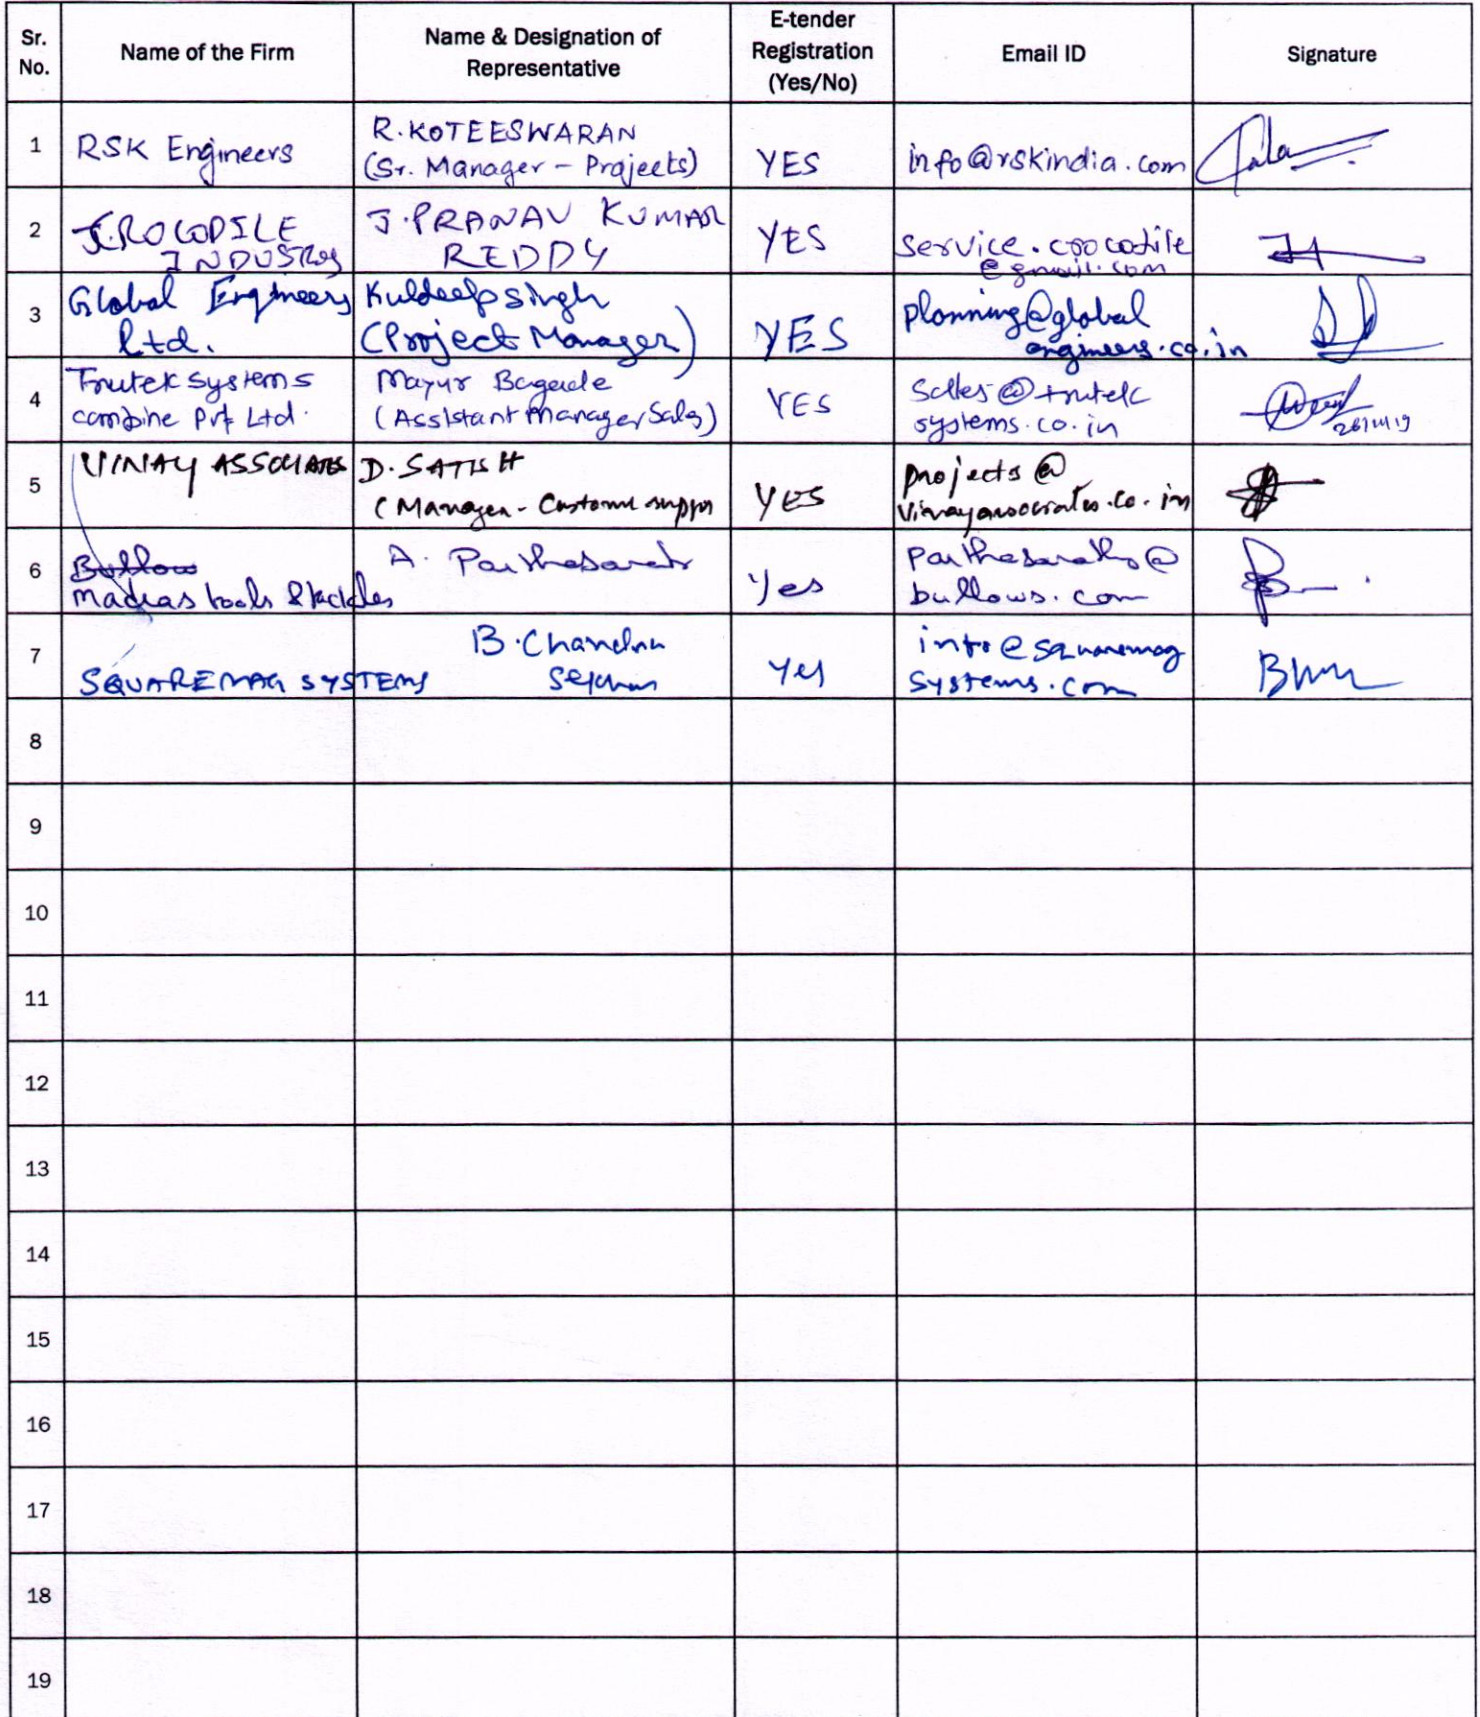 Sr. No. Name of the Firm Name & Designation of Representative E-tender Registration (Yes/No) Email ID Signature
1 RSK Engineers R. KOTEESWARAN (Sr. Manager - Projects) YES info@rskindia.com
2 CROCODILE INDUSTRY J. PRANAV KUMAR REDDY YES service.crocodile@gmail.com
3 Global Engineers Ltd. Kuldeep singh (Project Manager) YES planning@global engineers.co.in
4 Trutek systems combine Pvt Ltd. Mayur Bagade (Assistant Manager Sales) YES sales@trutek systems.co.in
5 VINAY ASSOCIATES D. SATISH (Manager - Customer suppor YES projects@ vinayassociates.co.in
6 Bullows madras tools & tackles A. Parthasarathy Yes Parthasarathy@ bullows.com
7 SQUAREMAG SYSTEMS B. Chandra Sekhar Yes info@squaremag systems.com
8
9
10
11
12
13
14
15
16
17
18
19